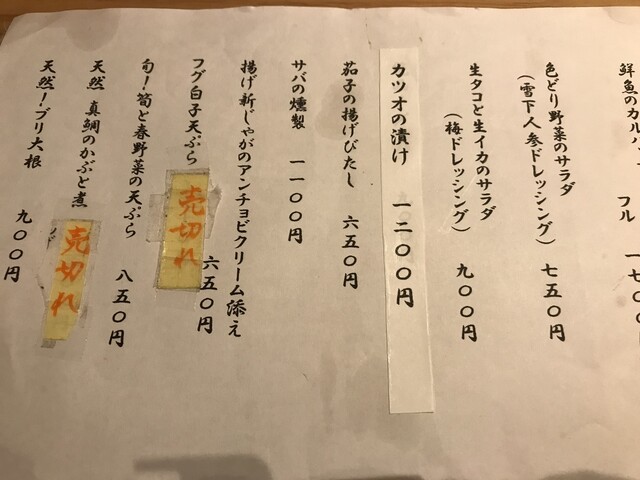 鮮魚のカルパッ
フル 一七〇
色どり野菜のサラダ
(雪下人参ドレッシング) 七五〇円
生タコと生イカのサラダ
(梅ドレッシング) 九〇〇円
カツオの漬け 一二〇〇円
茄子の揚げびたし 六五〇円
サバの燻製 一一〇〇円
揚げ新じゃがのアンチョビクリーム添え
六五〇円
フグ白子天ぷら 売切れ
旬!筍と春野菜の天ぷら 八五〇円
天然 真鯛のかぶと煮 売切れ
天然!ブリ大根 九〇〇円